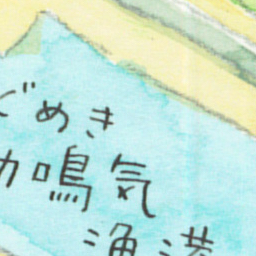 どめき
動鳴気
漁港